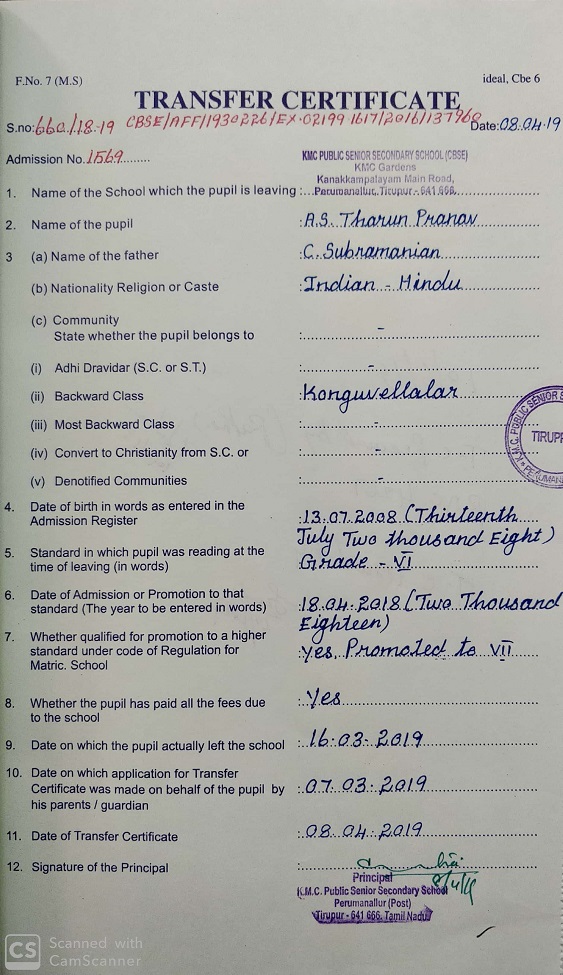 F.No. 7 (M.S)
ideal, Cbe 6
TRANSFER CERTIFICATE
S.no: 660/18-19 CBSE/AFF/1930226/EX-02199 1617/2016/137960 Date: 08.04.19
Admission No. 1569
KMC PUBLIC SENIOR SECONDARY SCHOOL (CBSE)
KMC Gardens
Kanakkampalayam Main Road,
1. Name of the School which the pupil is leaving : Perumanallur, Tirupur - 641 666.
2. Name of the pupil : A.S. Tharun Pranav
3 (a) Name of the father : C. Subramanian
(b) Nationality Religion or Caste : Indian - Hindu
(c) Community
State whether the pupil belongs to : -
(i) Adhi Dravidar (S.C. or S.T.) : -
(ii) Backward Class : Konguvellalar
(iii) Most Backward Class : -
(iv) Convert to Christianity from S.C. or : -
(v) Denotified Communities : -
K.M.C. PUBLIC SENIOR S
TIRUPP
PERUMAN
4. Date of birth in words as entered in the
Admission Register : 13.07.2008 (Thirteenth
July Two thousand Eight)
5. Standard in which pupil was reading at the
time of leaving (in words) : Grade - VI
6. Date of Admission or Promotion to that
standard (The year to be entered in words) : 18.04.2018 (Two Thousand
Eighteen)
7. Whether qualified for promotion to a higher
standard under code of Regulation for : Yes, Promoted to VII
Matric. School
8. Whether the pupil has paid all the fees due : Yes
to the school
9. Date on which the pupil actually left the school : 16.03.2019
10. Date on which application for Transfer
Certificate was made on behalf of the pupil by : 07.03.2019
his parents / guardian
11. Date of Transfer Certificate : 08.04.2019
12. Signature of the Principal :
8/4/19
Principal
K.M.C. Public Senior Secondary School
Perumanallur (Post)
Tirupur - 641 666. Tamil Nadu
CS Scanned with
CamScanner